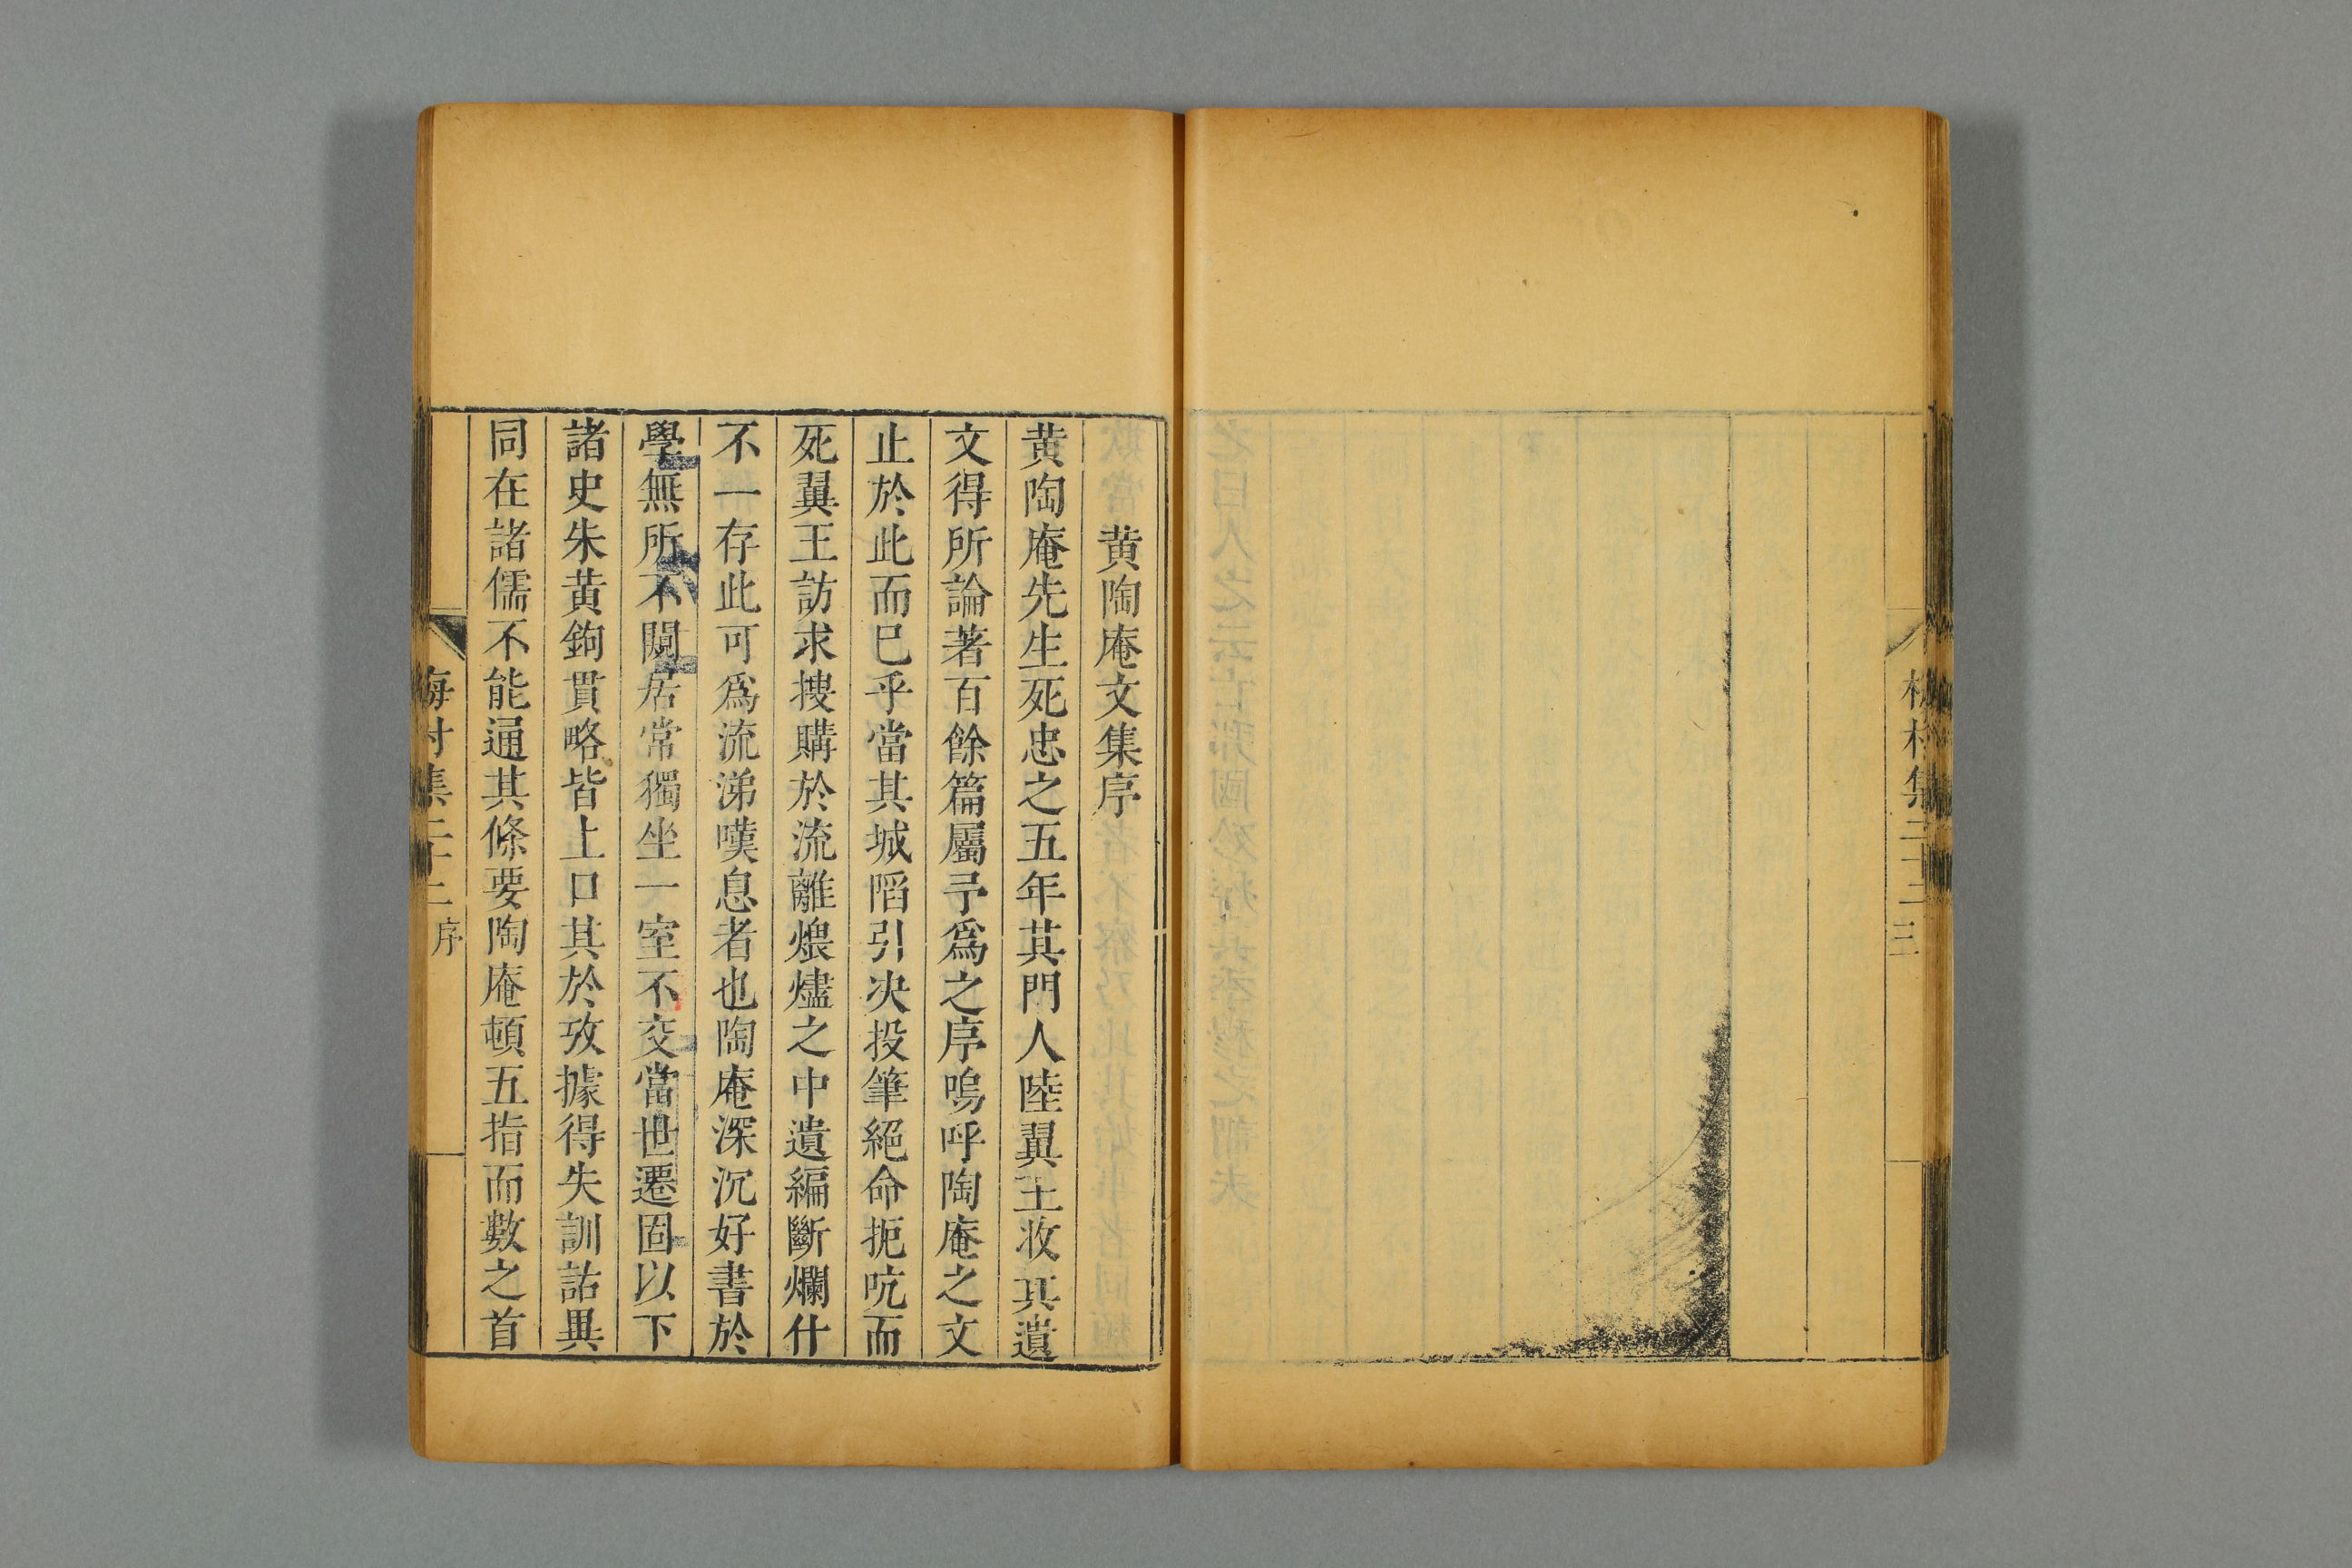 三
黄陶庵文集序
黄陶庵先生死忠之五年其門人陸翼王收其遺
文得所論著百餘篇屬予爲之序嗚呼陶庵之文
止於此而已乎當其城陷引决投筆絕命扼吭而
死翼王訪求搜購於流離煨燼之中遺編斷爛什
不一存此可爲流涕嘆息者也陶庵深沉好書於
學無所不闚居常獨坐一室不交當世遷固以下
諸史朱黄鉤貫略皆上口其於攷據得失訓詁異
同在諸儒不能通其條要陶庵頓五指而數之首
梅村集二十二 序